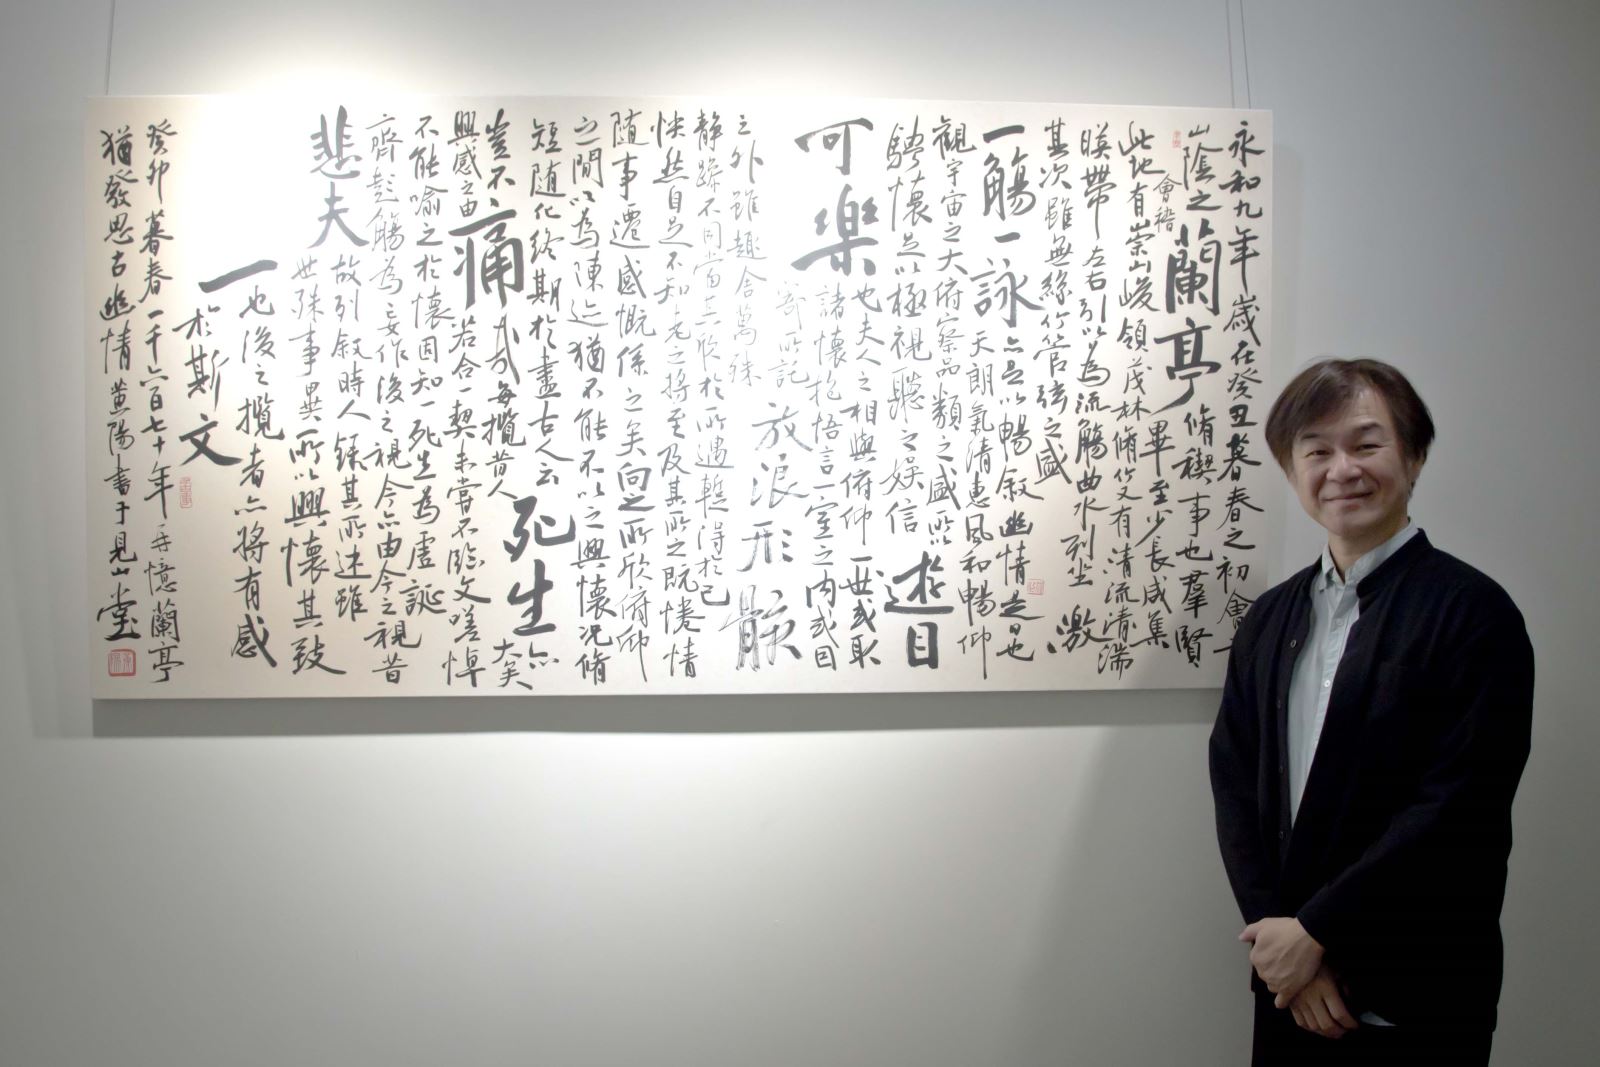 永和九年歲在癸丑暮春之初會
會稽
山陰之蘭亭脩稧事也羣賢
畢至少長咸集
此地有崇山峻領茂林脩竹又有清流激湍
暎帶左右引以為流觴曲水列坐
其次雖無絲竹管弦之盛
一觴一詠亦足以暢叙幽情是日也
天朗氣清惠風和暢仰
觀宇宙之大俯察品類之盛所以遊目
騁懷足以極視聽之娛信
可樂也夫人之相與俯仰一世或取
諸懷抱悟言一室之內或因
寄所託放浪形骸
之外雖趣舍萬殊
靜躁不同當其欣於所遇蹔得於己
怏然自足不知老之將至及其所之既惓情
隨事遷感慨係之矣向之所欣俯仰
之間以為陳迹猶不能不以之興懷況脩
短隨化終期於盡古人云死生亦大矣
豈不痛哉每攬昔人
興感之由若合一契未嘗不臨文嗟悼
不能喻之於懷固知一死生為虛誕
齊彭觴為妄作後之視今亦由今之視昔
悲夫故列叙時人錄其所述雖
世殊事異所以興懷其致
一也後之攬者亦將有感
於斯文
癸卯暮春一千六百七十年再憶蘭亭
猶發思古幽情黃陽書于見山堂